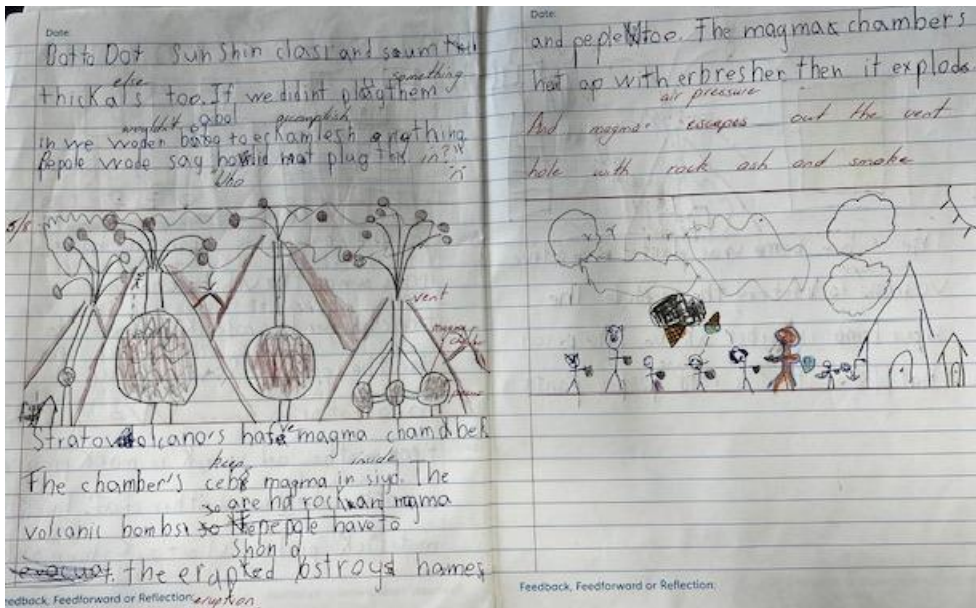 Date:
Dot to Dot Sun Shin class and
else something
thickals too. If we didint plug them
wouldn't abel accomplish
in we woden to echamlesh anything
Pepole wode say plug this in?"
Who
5/8
vent
magma
Stratovolcano's have magma chamber
keep inside
The chamber's cebe magma in siyd. The
so are hd rock and magma
volcanic bombs so the pepole have to
evacuat. the erapted bstroys homes
edback, Feedforward or Reflection: eruption
Date:
and peple too. The magma chambers
heat ap with erbresher then it explods
air pressure
And magma escapes out the vent
hole with rock ash and smoke
Feedback, Feedforward or Reflection: